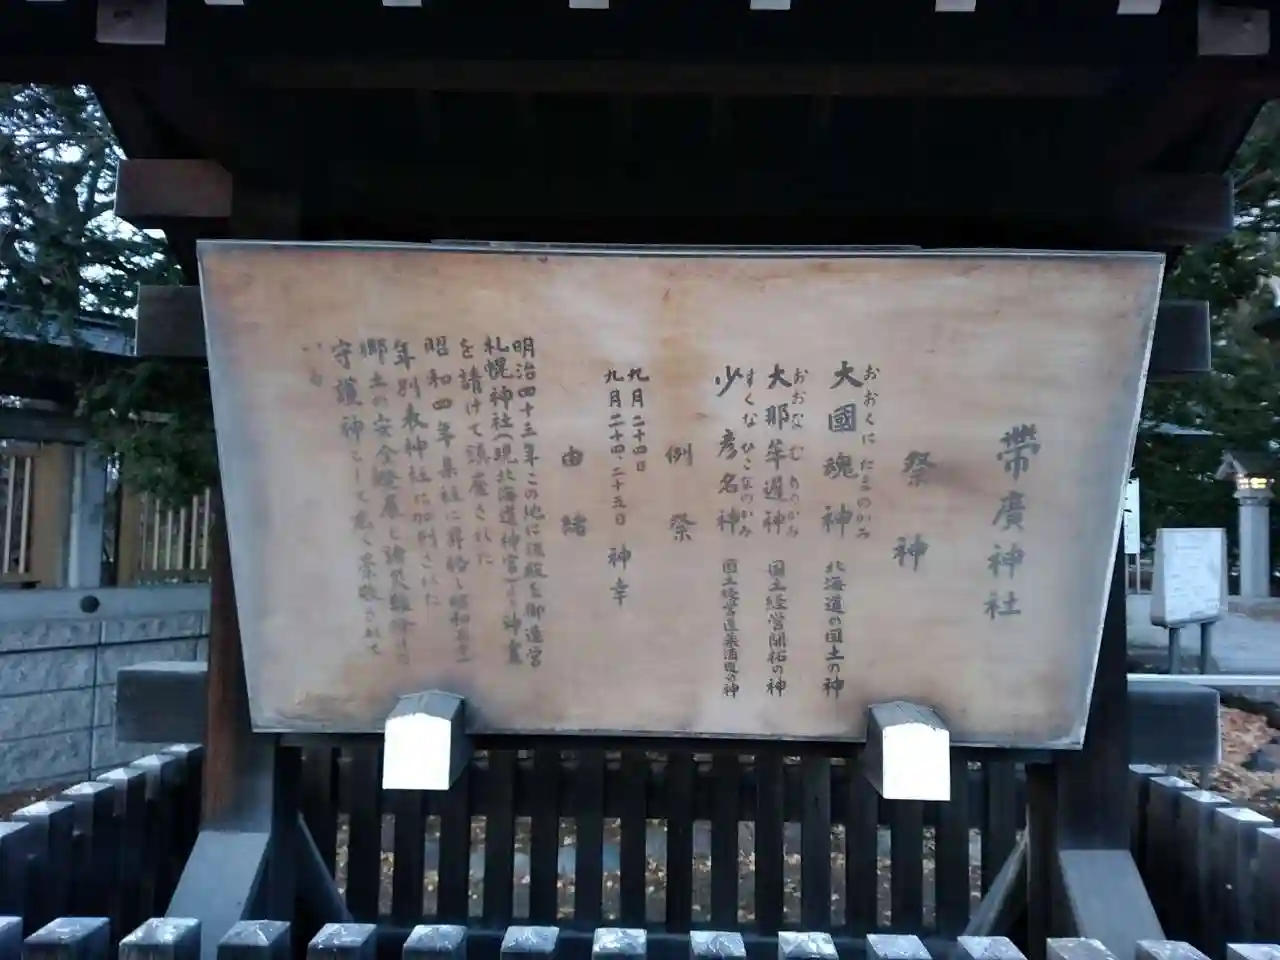 帶廣神社
祭神
大國魂神 北海道の国土の神
おおくにたまのかみ
大那牟遲神 国土経営開拓の神
おおなむちのかみ
少彦名神 国土経営医薬酒造の神
すくなひこなのかみ
例祭
九月二十四日
九月二十四、二十五日 神幸
由緒
明治四十三年この地に社殿を御造営
札幌神社(現北海道神宮)より神霊
を請けて鎮座された
昭和四年県社に昇格し昭和
年別表神社に加列された
郷土の安全発展と諸災
守護神として広く崇敬されて
いる